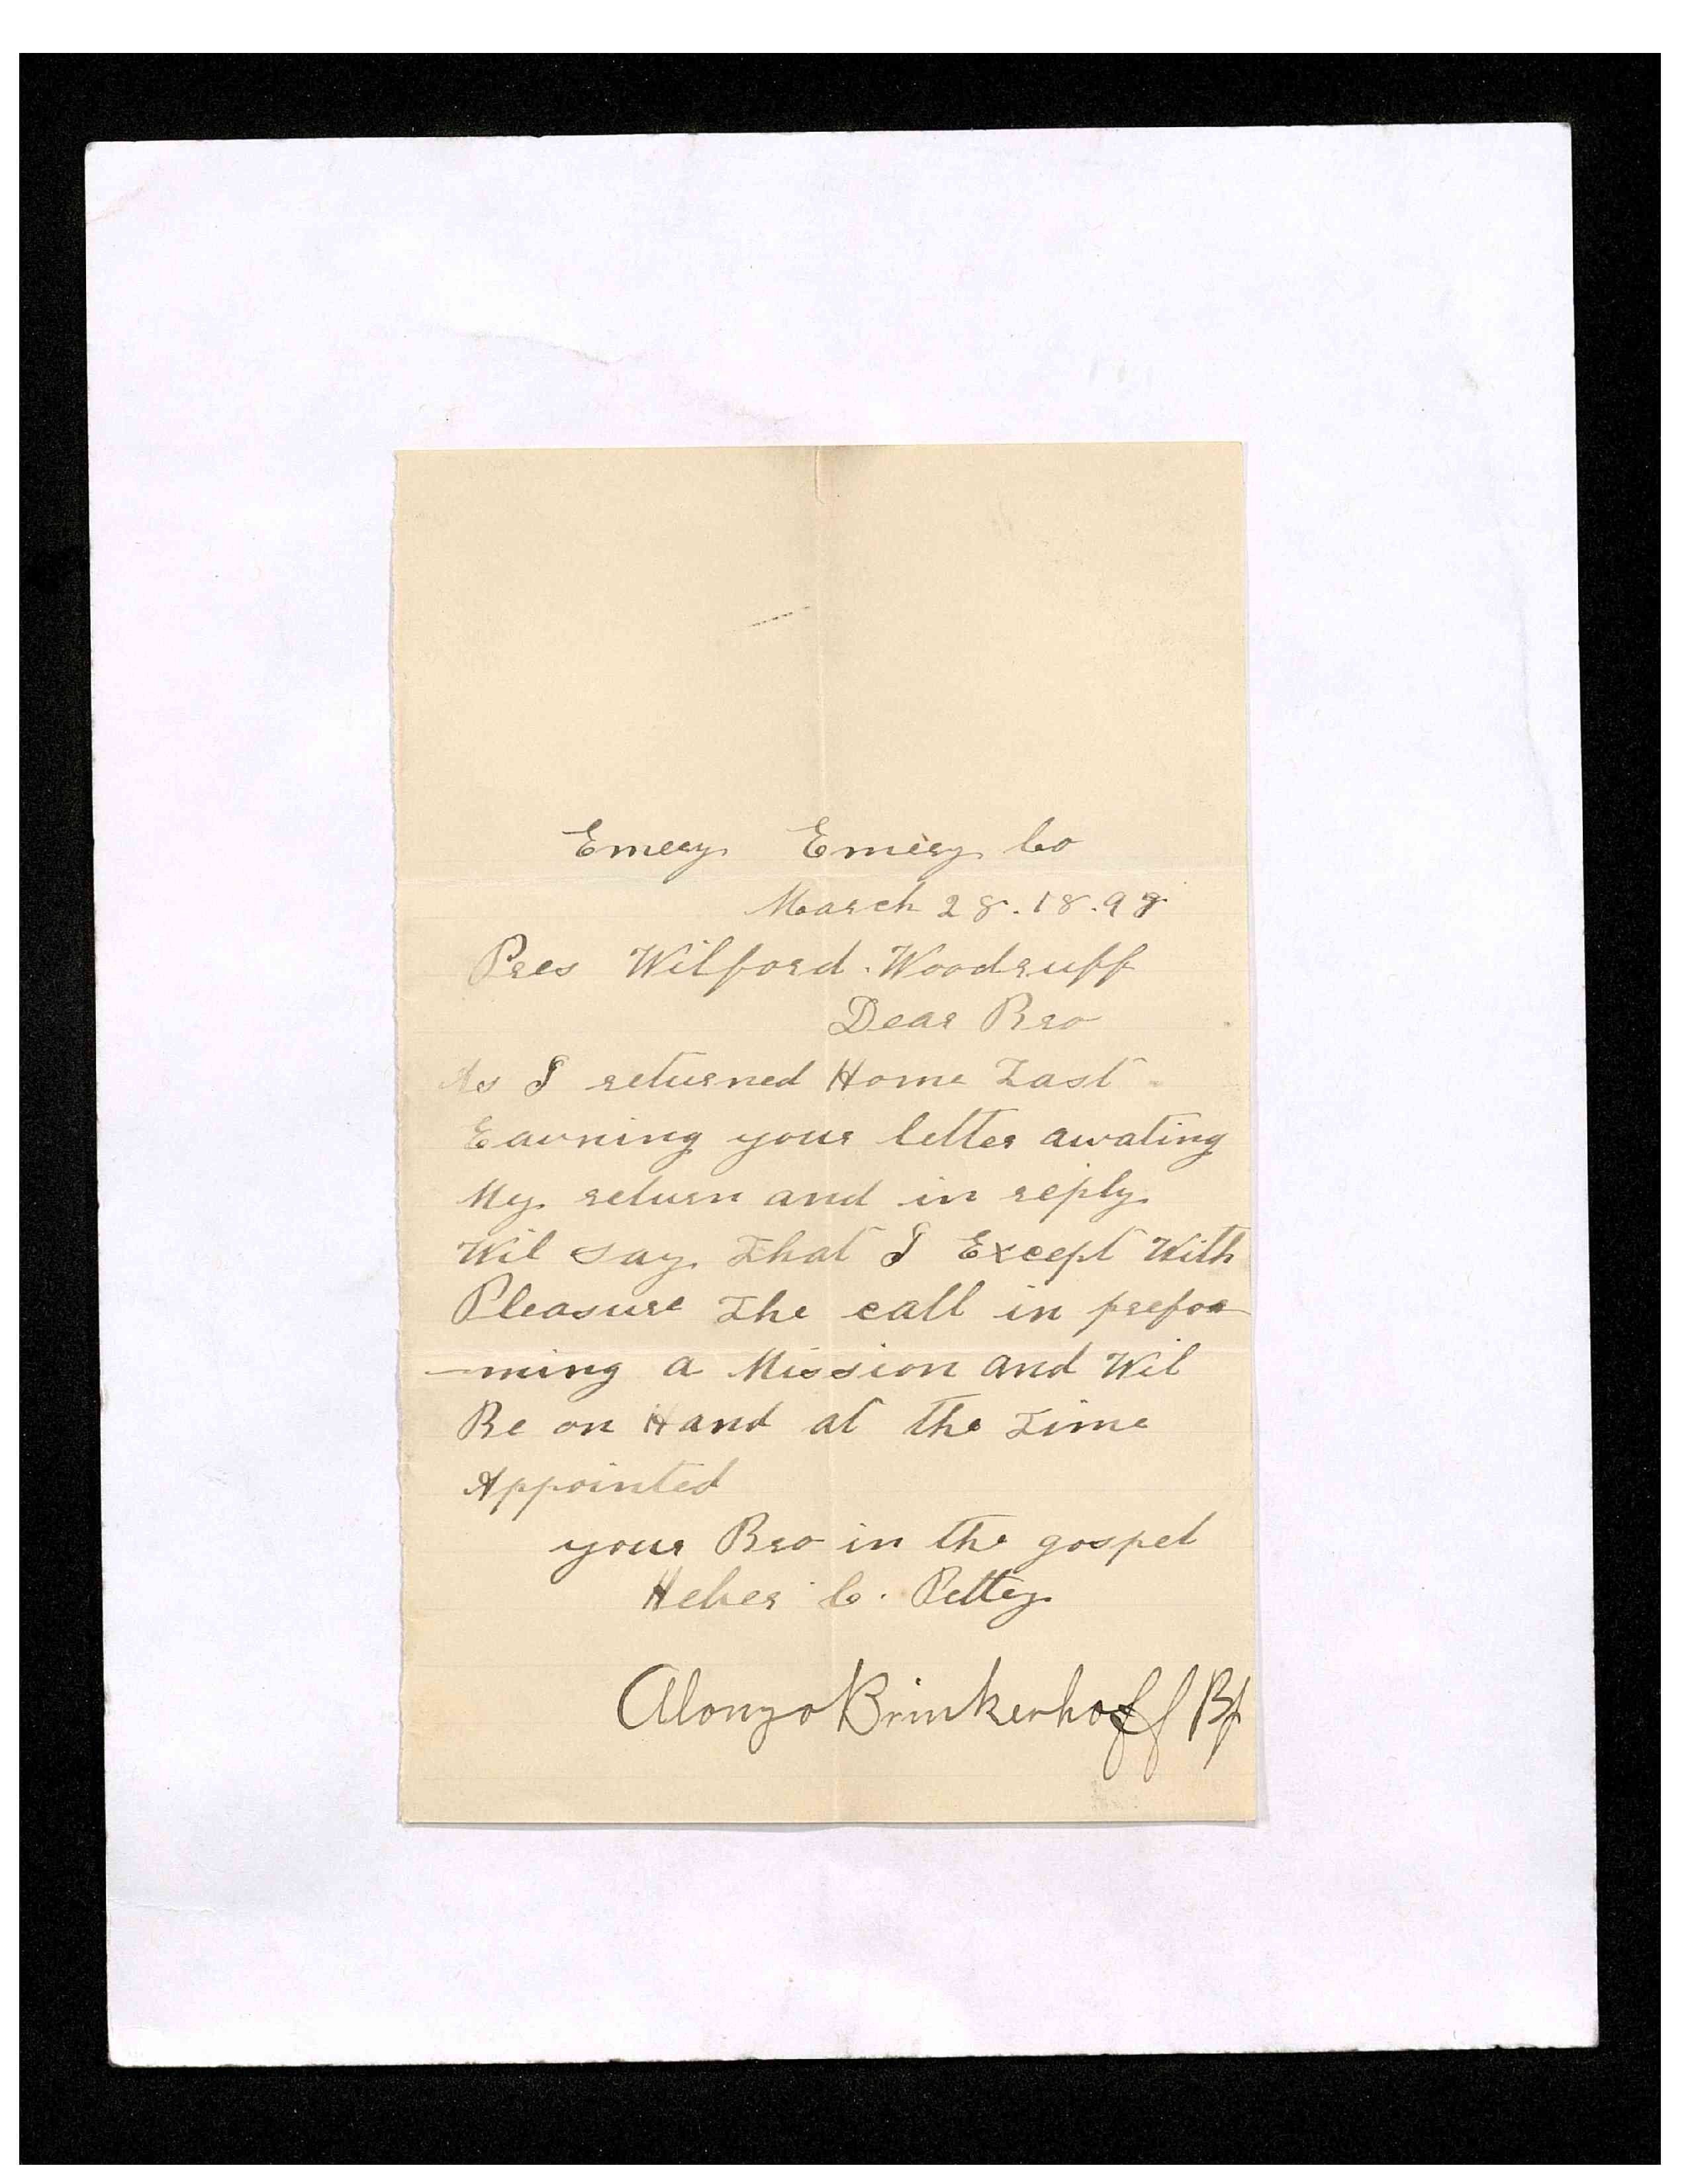 Emery Emery Co
March 28. 18.98
Pres Wilford. Woodruff
Dear Bro
As I returned Home Last
Eavning your letter awating
My return and in reply
Wil say That I Except With
Pleasure The call in prefor
-ming a Mission and Wil
Be on Hand at the Time
Appointed
your Bro in the gospel
Heber C. Pettey
Alonzo Brinkerhoff Bp